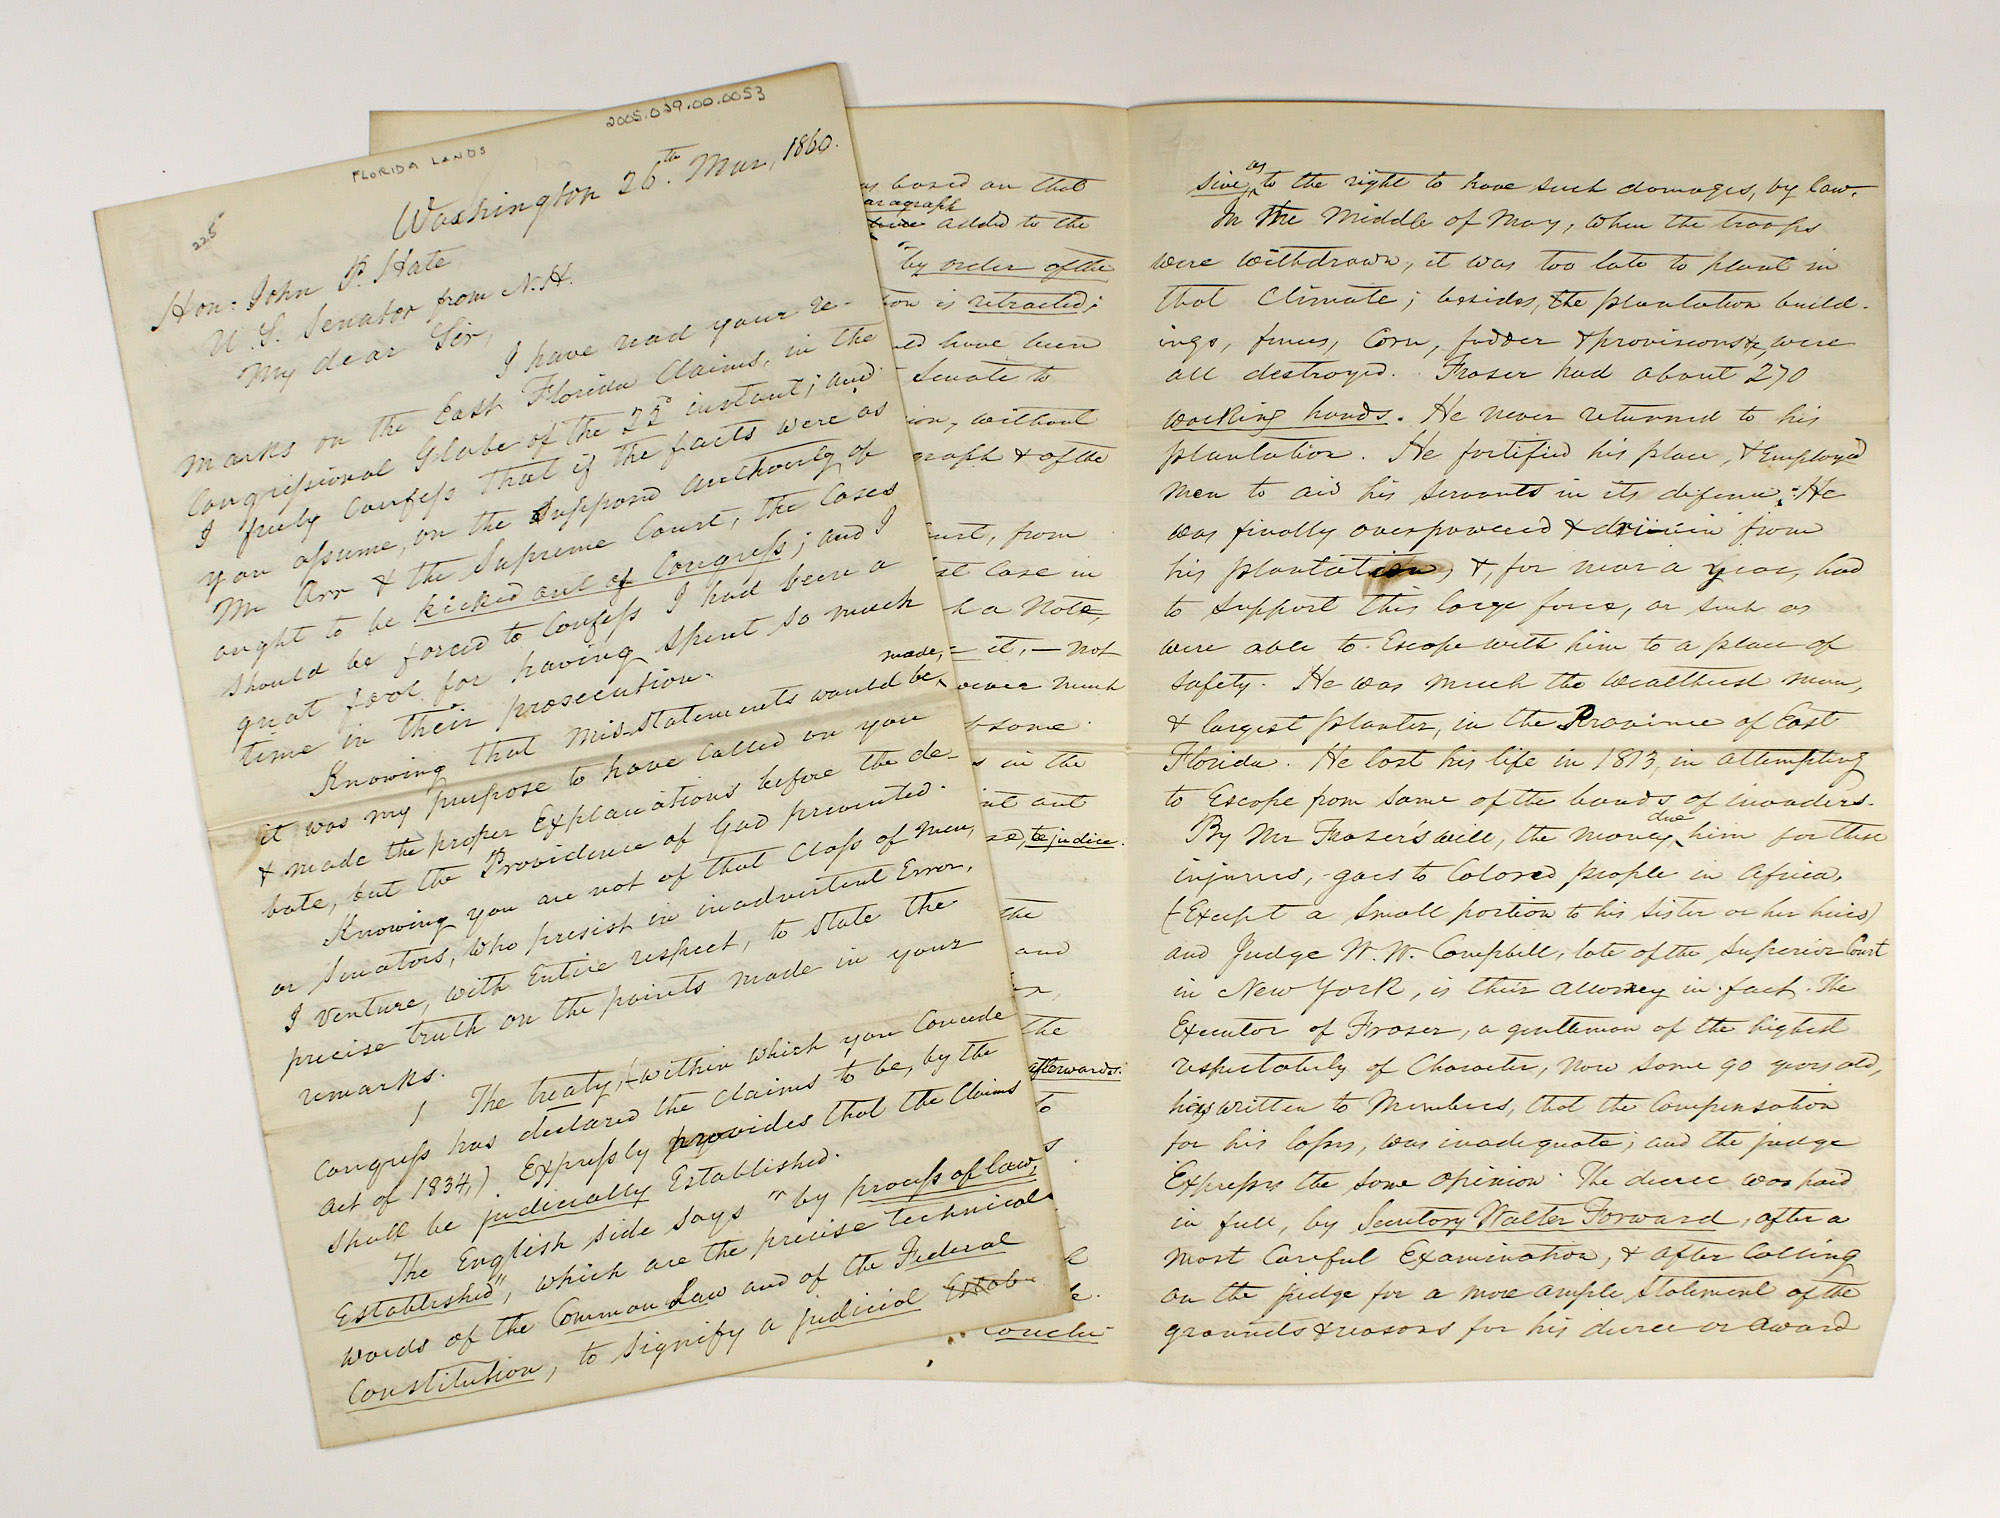 2005.029.00.0053
FLORIDA LANDS
225
Washington 26th. Mar, 1860.
Hon: John P. Hale
U. S. Senator from N. H.
My dear Sir,
I have read your re-
marks on the East Florida Claims, in the
Congressional Globe of the 22d instant; and
I freely Confess that if the facts were as
you assume, on the Supposed authority of
Mr Orr & the Supreme Court, the Cases
ought to be kicked out of Congress; and I
should be forced to Confess I had been a
great fool for having spent so much
time in their prosecution.
Knowing that mis-statements would be made,
it was my purpose to have called on you
& made the proper Explanations before the de-
bate, but the Providence of God prevented.
Knowing you are not of that Class of men,
or Senators, who persist in inadvertent Error,
I venture, with Entire respect, to state the
precise truth on the points made in your
remarks.
1 The treaty, (within which you Concede
Congress has declared the Claims to be, by the
act of 1834,) Expressly provides that the Claims
shall be judicially Established.
The English side says "by process of law,
Established", which are the precise technical
words of the Common Law and of the Federal
Constitution, to signify a judicial Estab-
as based on that
paragraph
added to the
"by order of the
is retracted;
have been
Senate to
without
graph & of the
from
st Case in
a Note,
it, — not
never much
some
s in the
out
te judice.
the
and
the
afterwards.
to
Conclu-
sive, as to the right to have such damages, by law.
In the Middle of May, when the troops
were withdrawn, it was too late to plant in
that Climate; besides, the plantation build-
ings, fences, Corn, fodder & provisions &c, were
all destroyed. Fraser had about 270
working hands. He never returned to his
plantation. He fortified his place, & Employed
men to aid his servants in its defence. He
was finally overpowered & driven from
his plantation, &, for near a year, had
to support this large force, or such as
were able to Escape with him to a place of
safety. He was much the wealthiest man,
& largest planter, in the Province of East
Florida. He lost his life in 1813, in attempting
to Escape from some of the bands of invaders.
By Mr Fraser's will, the money due him for these
injuries, goes to Colored people in Africa,
(Except a small portion to his sister or her heirs)
and Judge W. W. Campbell, late of the Superior Court
in New York, is their attorney in fact. The
Executor of Fraser, a gentleman of the highest
respectability of Character, now some 90 years old,
has written to Members, that the Compensation
for his losses, was inadequate; and the judge
Expresses the same opinion. The decree was paid
in full, by Secretary Walter Forward, after a
most Careful Examination, & after Calling
on the judge for a more ample statement of the
grounds & reasons for his decree or award